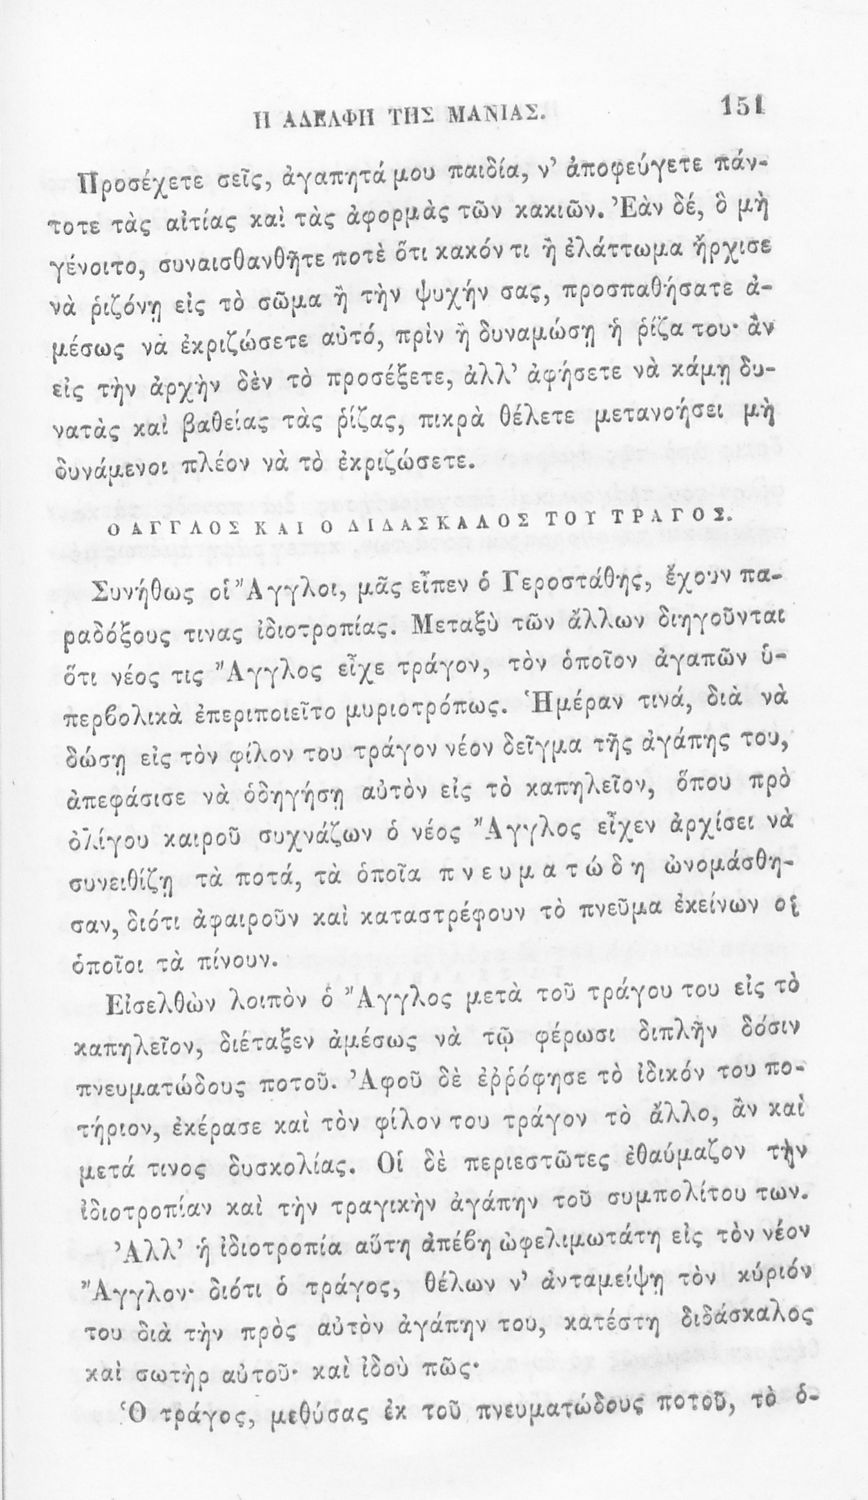 Η ΑΔΕΛΦΗ ΤΗΣ ΜΑΝΙΑΣ. 151
Προσέχετε σεῖς, ἀγαπητά μου παιδία, ν’ ἀποφεύγετε πάν-
τοτε τὰς αἰτίας καὶ τὰς ἀφορμὰς τῶν κακιῶν. Ἐὰν δέ, ὃ μὴ
γένοιτο, συναισθανθῆτε ποτὲ ὅτι κακόν τι ἢ ἐλάττωμα ἤρχισε
νὰ ῥιζόνῃ εἰς τὸ σῶμα ἢ τὴν ψυχήν σας, προσπαθήσατε ἀ-
μέσως νὰ ἐκριζώσετε αὐτό, πρὶν ἢ δυναμώσῃ ἡ ῥίζα του· ἂν
εἰς τὴν ἀρχὴν δὲν τὸ προσέξετε, ἀλλ’ ἀφήσετε νὰ κάμῃ δυ-
νατὰς καὶ βαθείας τὰς ῥίζας, πικρὰ θέλετε μετανοήσει μὴ
δυνάμενοι πλέον νὰ τὸ ἐκριζώσετε.
Ο ΑΓΓΛΟΣ ΚΑΙ Ο ΔΙΔΑΣΚΑΛΟΣ ΤΟΥ ΤΡΑΓΟΣ.
Συνήθως οἱ Ἄγγλοι, μᾶς εἶπεν ὁ Γεροστάθης, ἔχουν πα-
ραδόξους τινας ἰδιοτροπίας. Μεταξὺ τῶν ἄλλων διηγοῦνται
ὅτι νέος τις Ἄγγλος εἶχε τράγον, τὸν ὁποῖον ἀγαπῶν ὑ-
περβολικὰ ἐπεριποιεῖτο μυριοτρόπως. Ἡμέραν τινά, διὰ νὰ
δώσῃ εἰς τὸν φίλον του τράγον νέον δεῖγμα τῆς ἀγάπης του,
ἀπεφάσισε νὰ ὁδηγήσῃ αὐτὸν εἰς τὸ καπηλεῖον, ὅπου πρὸ
ὀλίγου καιροῦ συχνάζων ὁ νέος Ἄγγλος εἶχεν ἀρχίσει νὰ
συνειθίζῃ τὰ ποτά, τὰ ὁποῖα πνευματώδη ὠνομάσθη-
σαν, διότι ἀφαιροῦν καὶ καταστρέφουν τὸ πνεῦμα ἐκείνων οἱ
ὁποῖοι τὰ πίνουν.
Εἰσελθὼν λοιπὸν ὁ Ἄγγλος μετὰ τοῦ τράγου του εἰς τὸ
καπηλεῖον, διέταξεν ἀμέσως νὰ τῷ φέρωσι διπλῆν δόσιν
πνευματώδους ποτοῦ. Ἀφοῦ δὲ ἐῤῥόφησε τὸ ἰδικόν του πο-
τήριον, ἐκέρασε καὶ τὸν φίλον του τράγον τὸ ἄλλο, ἂν καὶ
μετά τινος δυσκολίας. Οἱ δὲ περιεστῶτες ἐθαύμαζον τὴν
ἰδιοτροπίαν καὶ τὴν τραγικὴν ἀγάπην τοῦ συμπολίτου των.
Ἀλλ’ ἡ ἰδιοτροπία αὕτη ἀπέβη ὠφελιμωτάτη εἰς τὸν νέον
Ἄγγλον· διότι ὁ τράγος, θέλων ν’ ἀνταμείψῃ τὸν κύριόν
του διὰ τὴν πρὸς αὐτὸν ἀγάπην του, κατέστη διδάσκαλος
καὶ σωτὴρ αὐτοῦ· καὶ ἰδοὺ πῶς·
Ὁ τράγος, μεθύσας ἐκ τοῦ πνευματώδους ποτοῦ, τὸ ὁ-